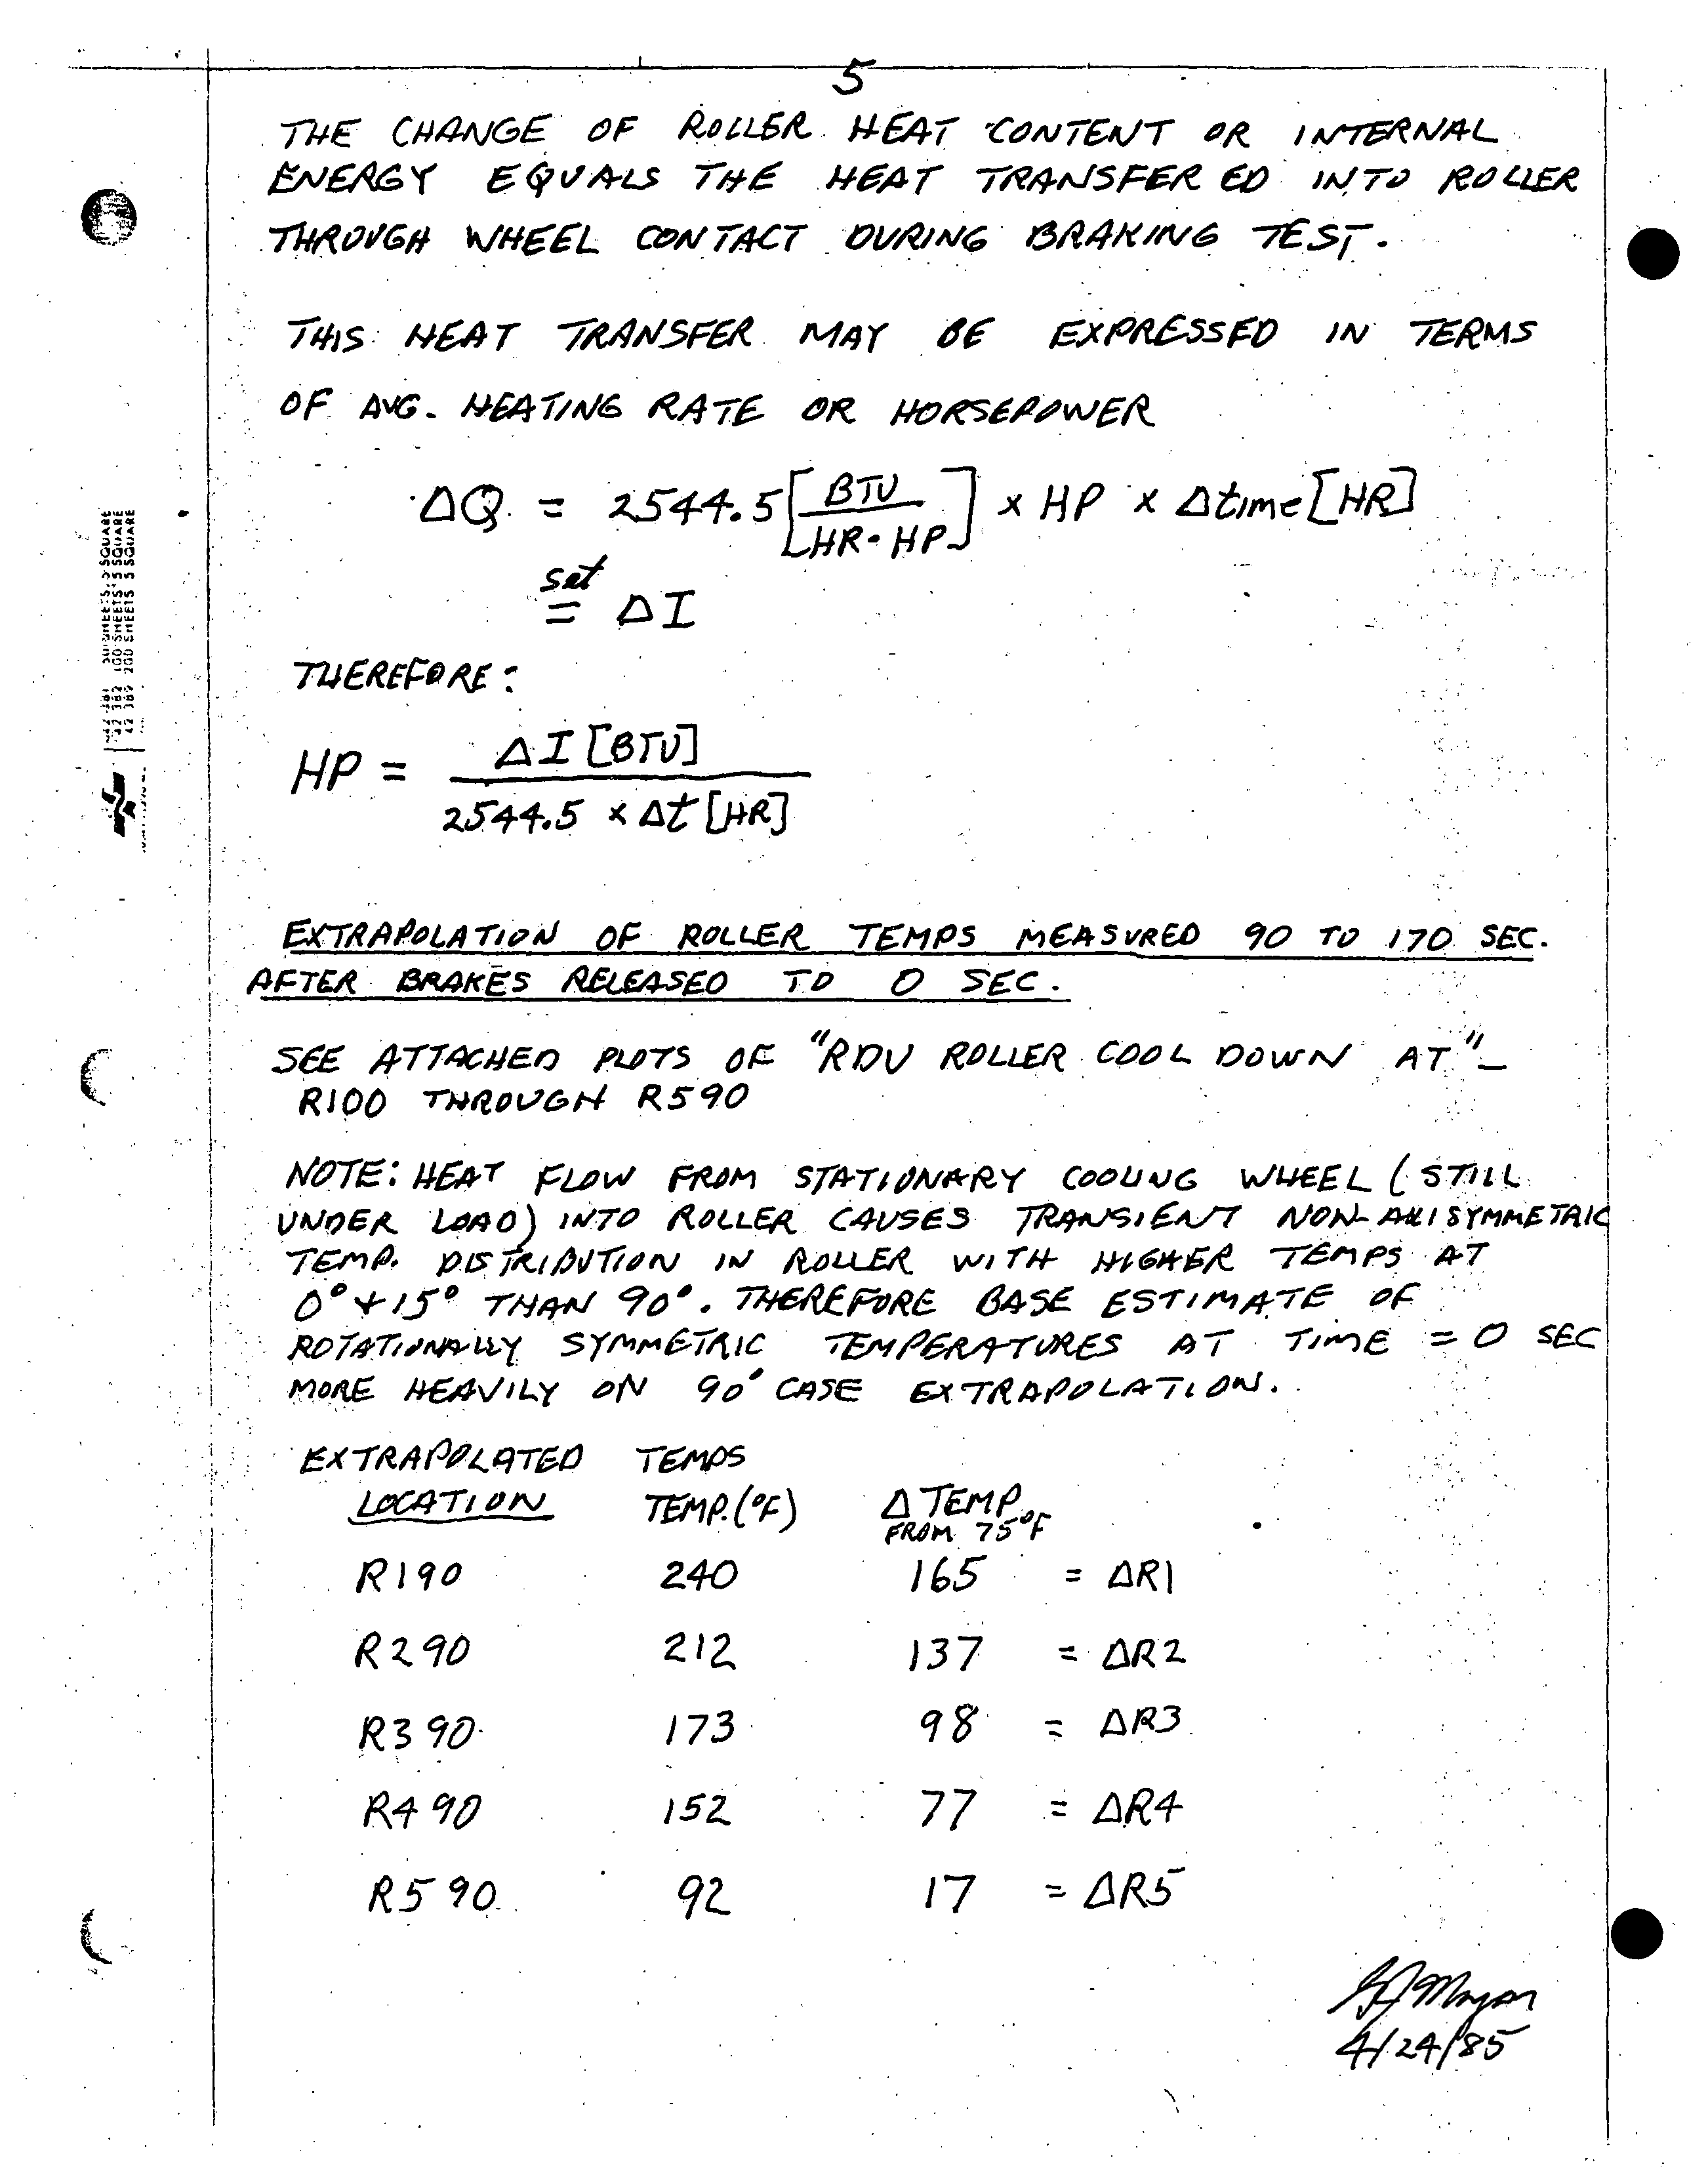 5
THE CHANGE OF ROLLER HEAT CONTENT OR INTERNAL
ENERGY EQUALS THE HEAT TRANSFERED INTO ROLLER
THROUGH WHEEL CONTACT DURING BRAKING TEST.
THIS HEAT TRANSFER MAY BE EXPRESSED IN TERMS
OF AVG. HEATING RATE OR HORSEPOWER
ΔQ = 2544.5 [BTU / HR·HP] × HP × Δtime [HR]
set
= ΔI
THEREFORE:
HP = ΔI [BTU] / 2544.5 × Δt [HR]
EXTRAPOLATION OF ROLLER TEMPS MEASURED 90 TO 170 SEC.
AFTER BRAKES RELEASED TO 0 SEC.
SEE ATTACHED PLOTS OF "RDU ROLLER COOL DOWN AT"—
R100 THROUGH R590
NOTE: HEAT FLOW FROM STATIONARY COOLING WHEEL (STILL
UNDER LOAD) INTO ROLLER CAUSES TRANSIENT NON-AXISYMMETRIC
TEMP. DISTRIBUTION IN ROLLER WITH HIGHER TEMPS AT
0° + 15° THAN 90°. THEREFORE BASE ESTIMATE OF
ROTATIONALLY SYMMETRIC TEMPERATURES AT TIME = 0 SEC
MORE HEAVILY ON 90° CASE EXTRAPOLATION.
EXTRAPOLATED TEMPS
LOCATION TEMP. (°F) Δ TEMP
FROM 75°F
R190 240 165 = ΔR1
R290 212 137 = ΔR2
R390 173 98 = ΔR3
R490 152 77 = ΔR4
R590 92 17 = ΔR5
4/24/85
42 382 100 SHEETS 5 SQUARE
42 389 200 SHEETS 5 SQUARE